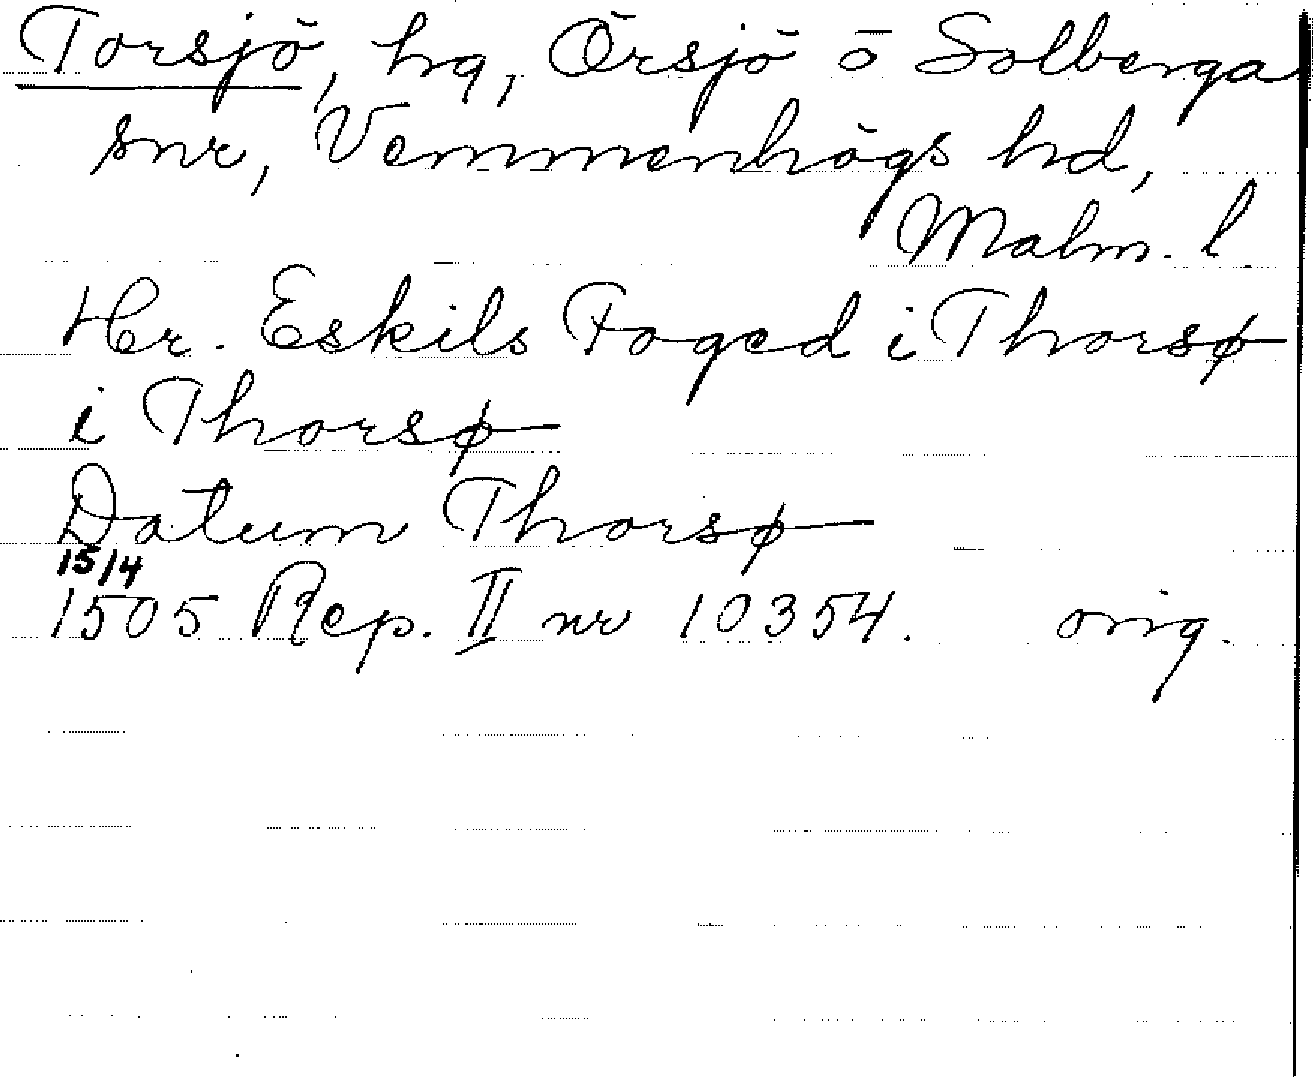 Torsjö, hg, Örsjö o Solberga
snr, Vemmenhögs hd,
Malm. l.
Hr. Eskils Foged i Thorsø
i Thorsø
Datum Thorsø
15/4
1505 Rep. II nr 10354. orig.